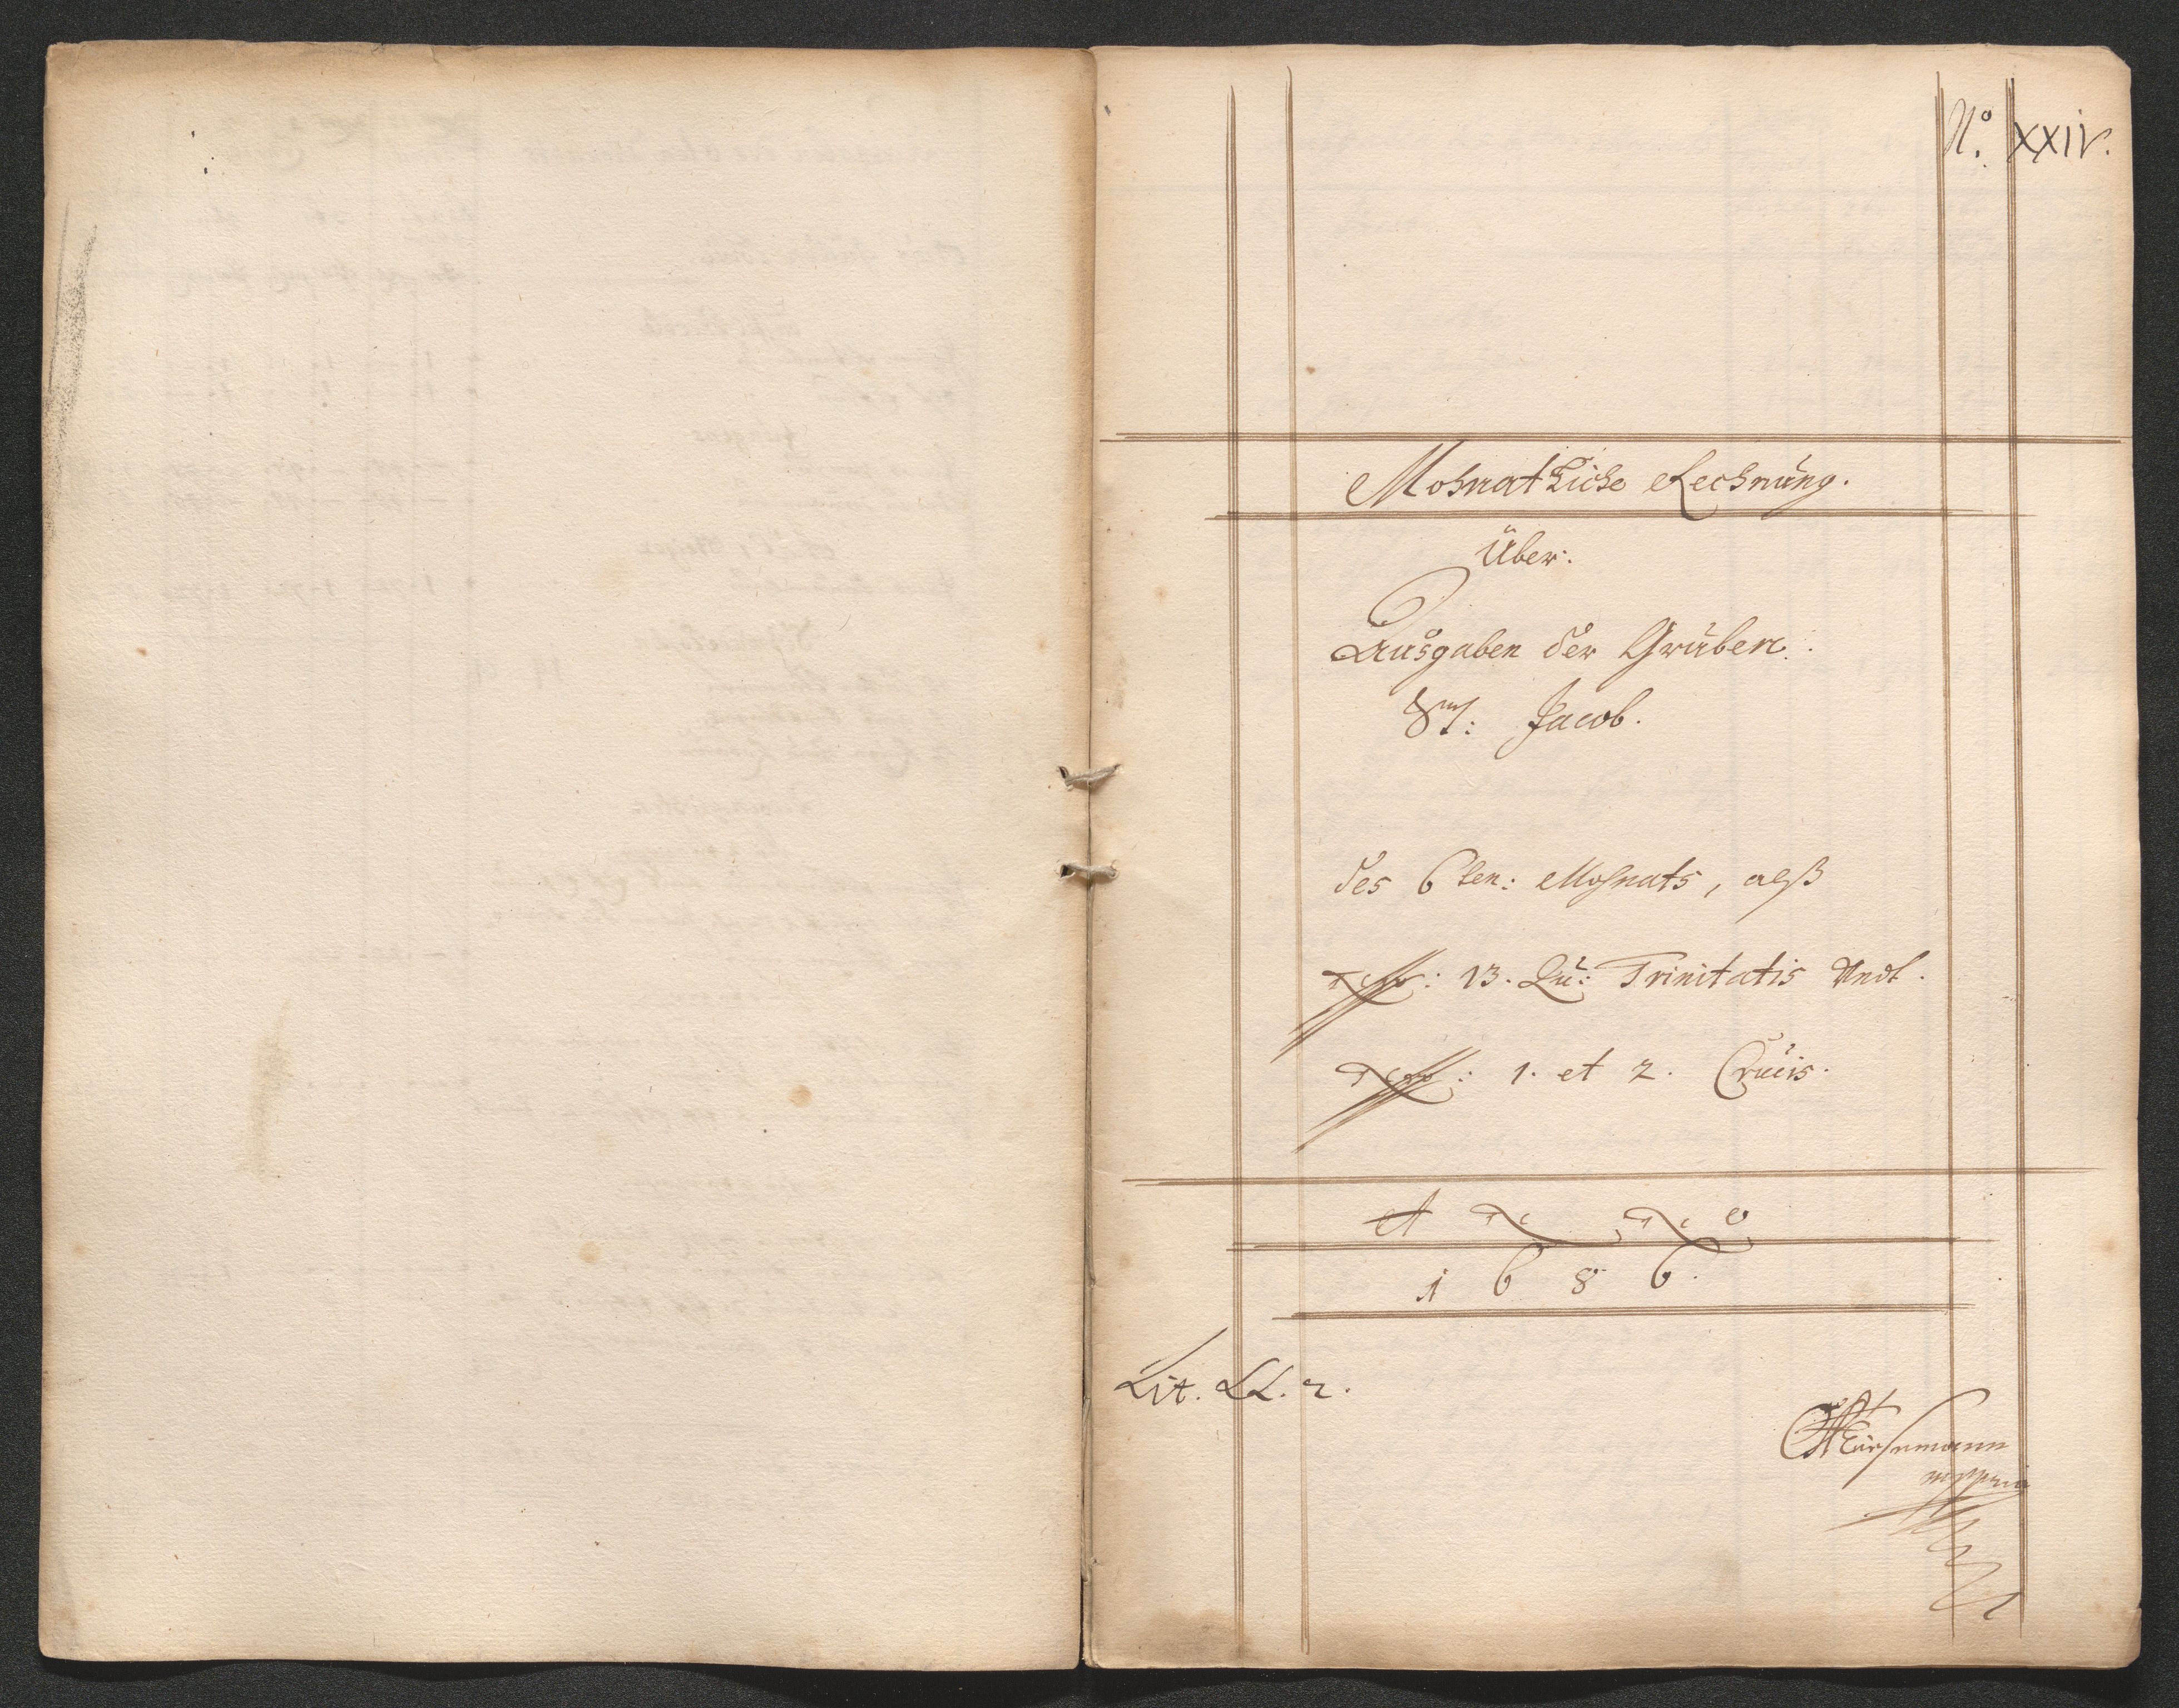 No. XXIV.
Mohnatliche Rechnung.
Über:
Ausgaben der Gruben:
St: Jacob.
des 6ten: Mohnats, alß
13. Qu: Trinitatis Undt.
1. et 2. Crucis.
1686.
Lit. LL. 2.
mppria